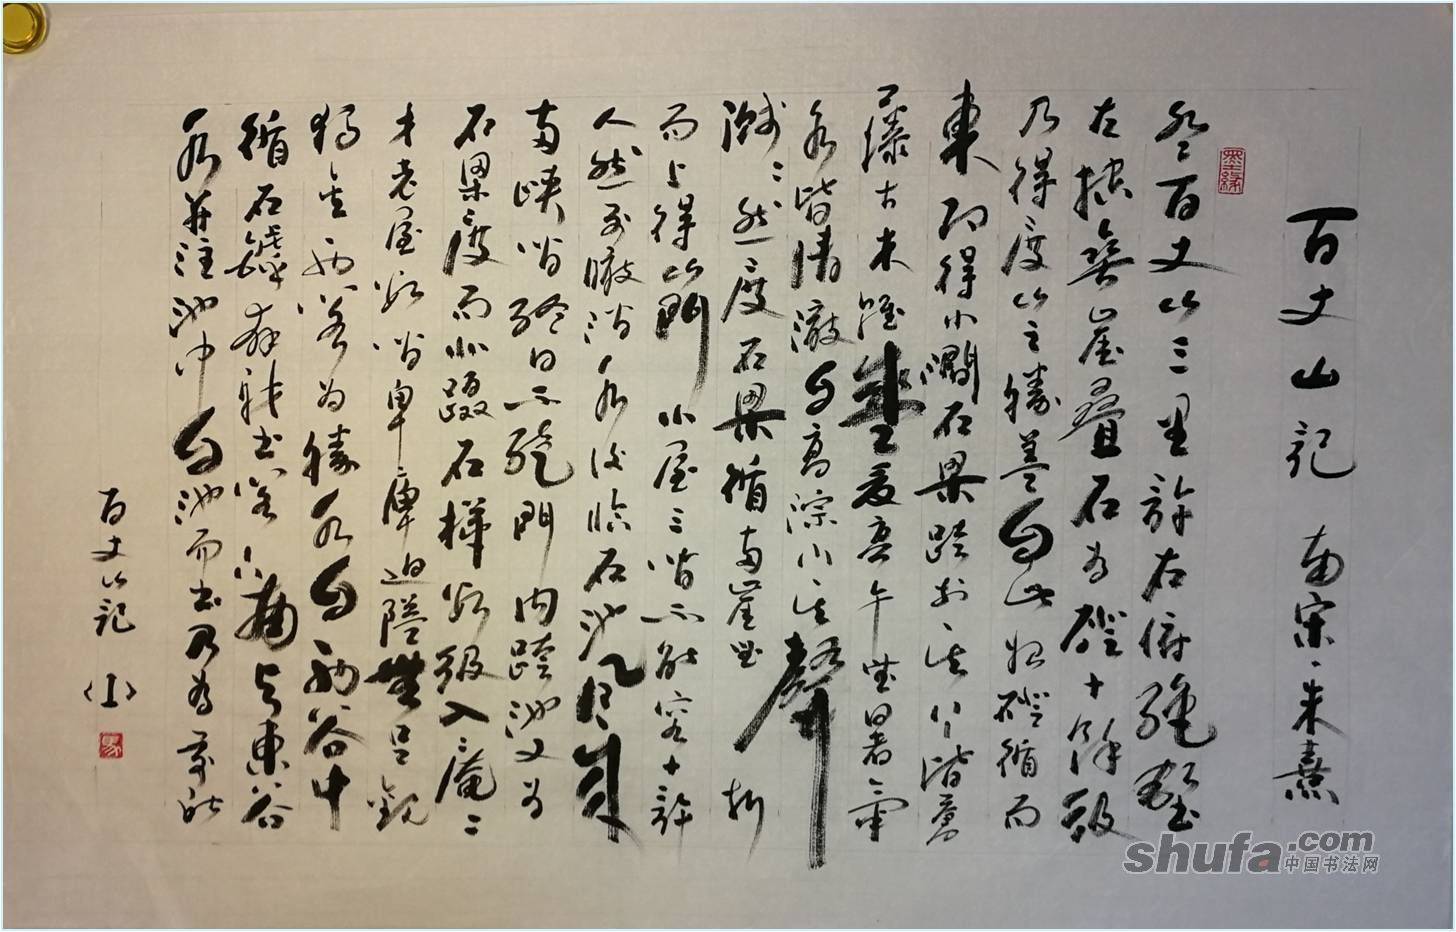 百丈山記 南宋·朱熹
登百丈山三里許右俯絕壑
左控垂崖疊石為磴十餘級
乃得度山之勝蓋自此始磴循而
東即得小澗石梁跨於其上皆蒼
藤古木雖盛夏亭午無暑氣
水皆清澈自高淙下其聲
濺濺然度石梁循兩崖曲折
而上得山門小屋三間不能容十許
人然前瞰澗水後臨石池風來
兩峽間終日不絕門內跨池又為
石梁度而北躡石梯數級入庵庵
才老屋數間卑庳迫隘無足觀
獨其西閣為勝水自西谷中
循石罅奔射出閣下南與東谷
水并注池中自池而出乃為前所
百丈山記
墨缘
shufa.com
中国书法网